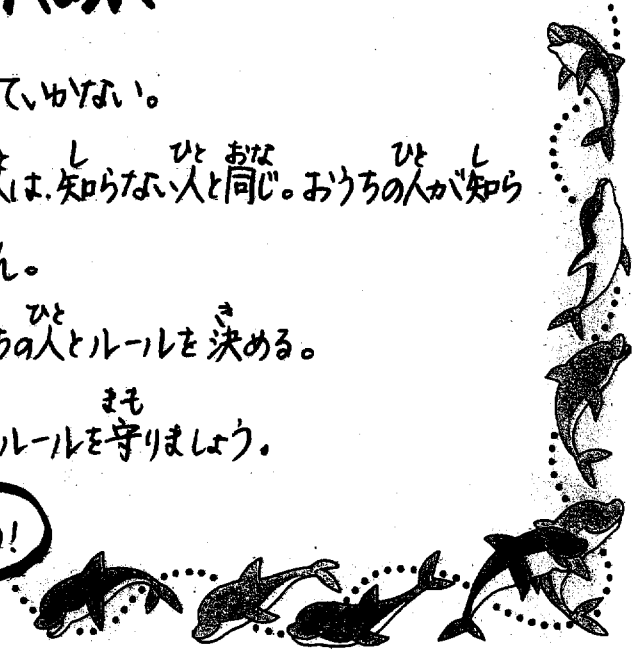 ていかない。
は、知らない人と同じ。おうちの人が知ら
ん。
ちの人とルールを決める。
ルールを守りましょう。
!